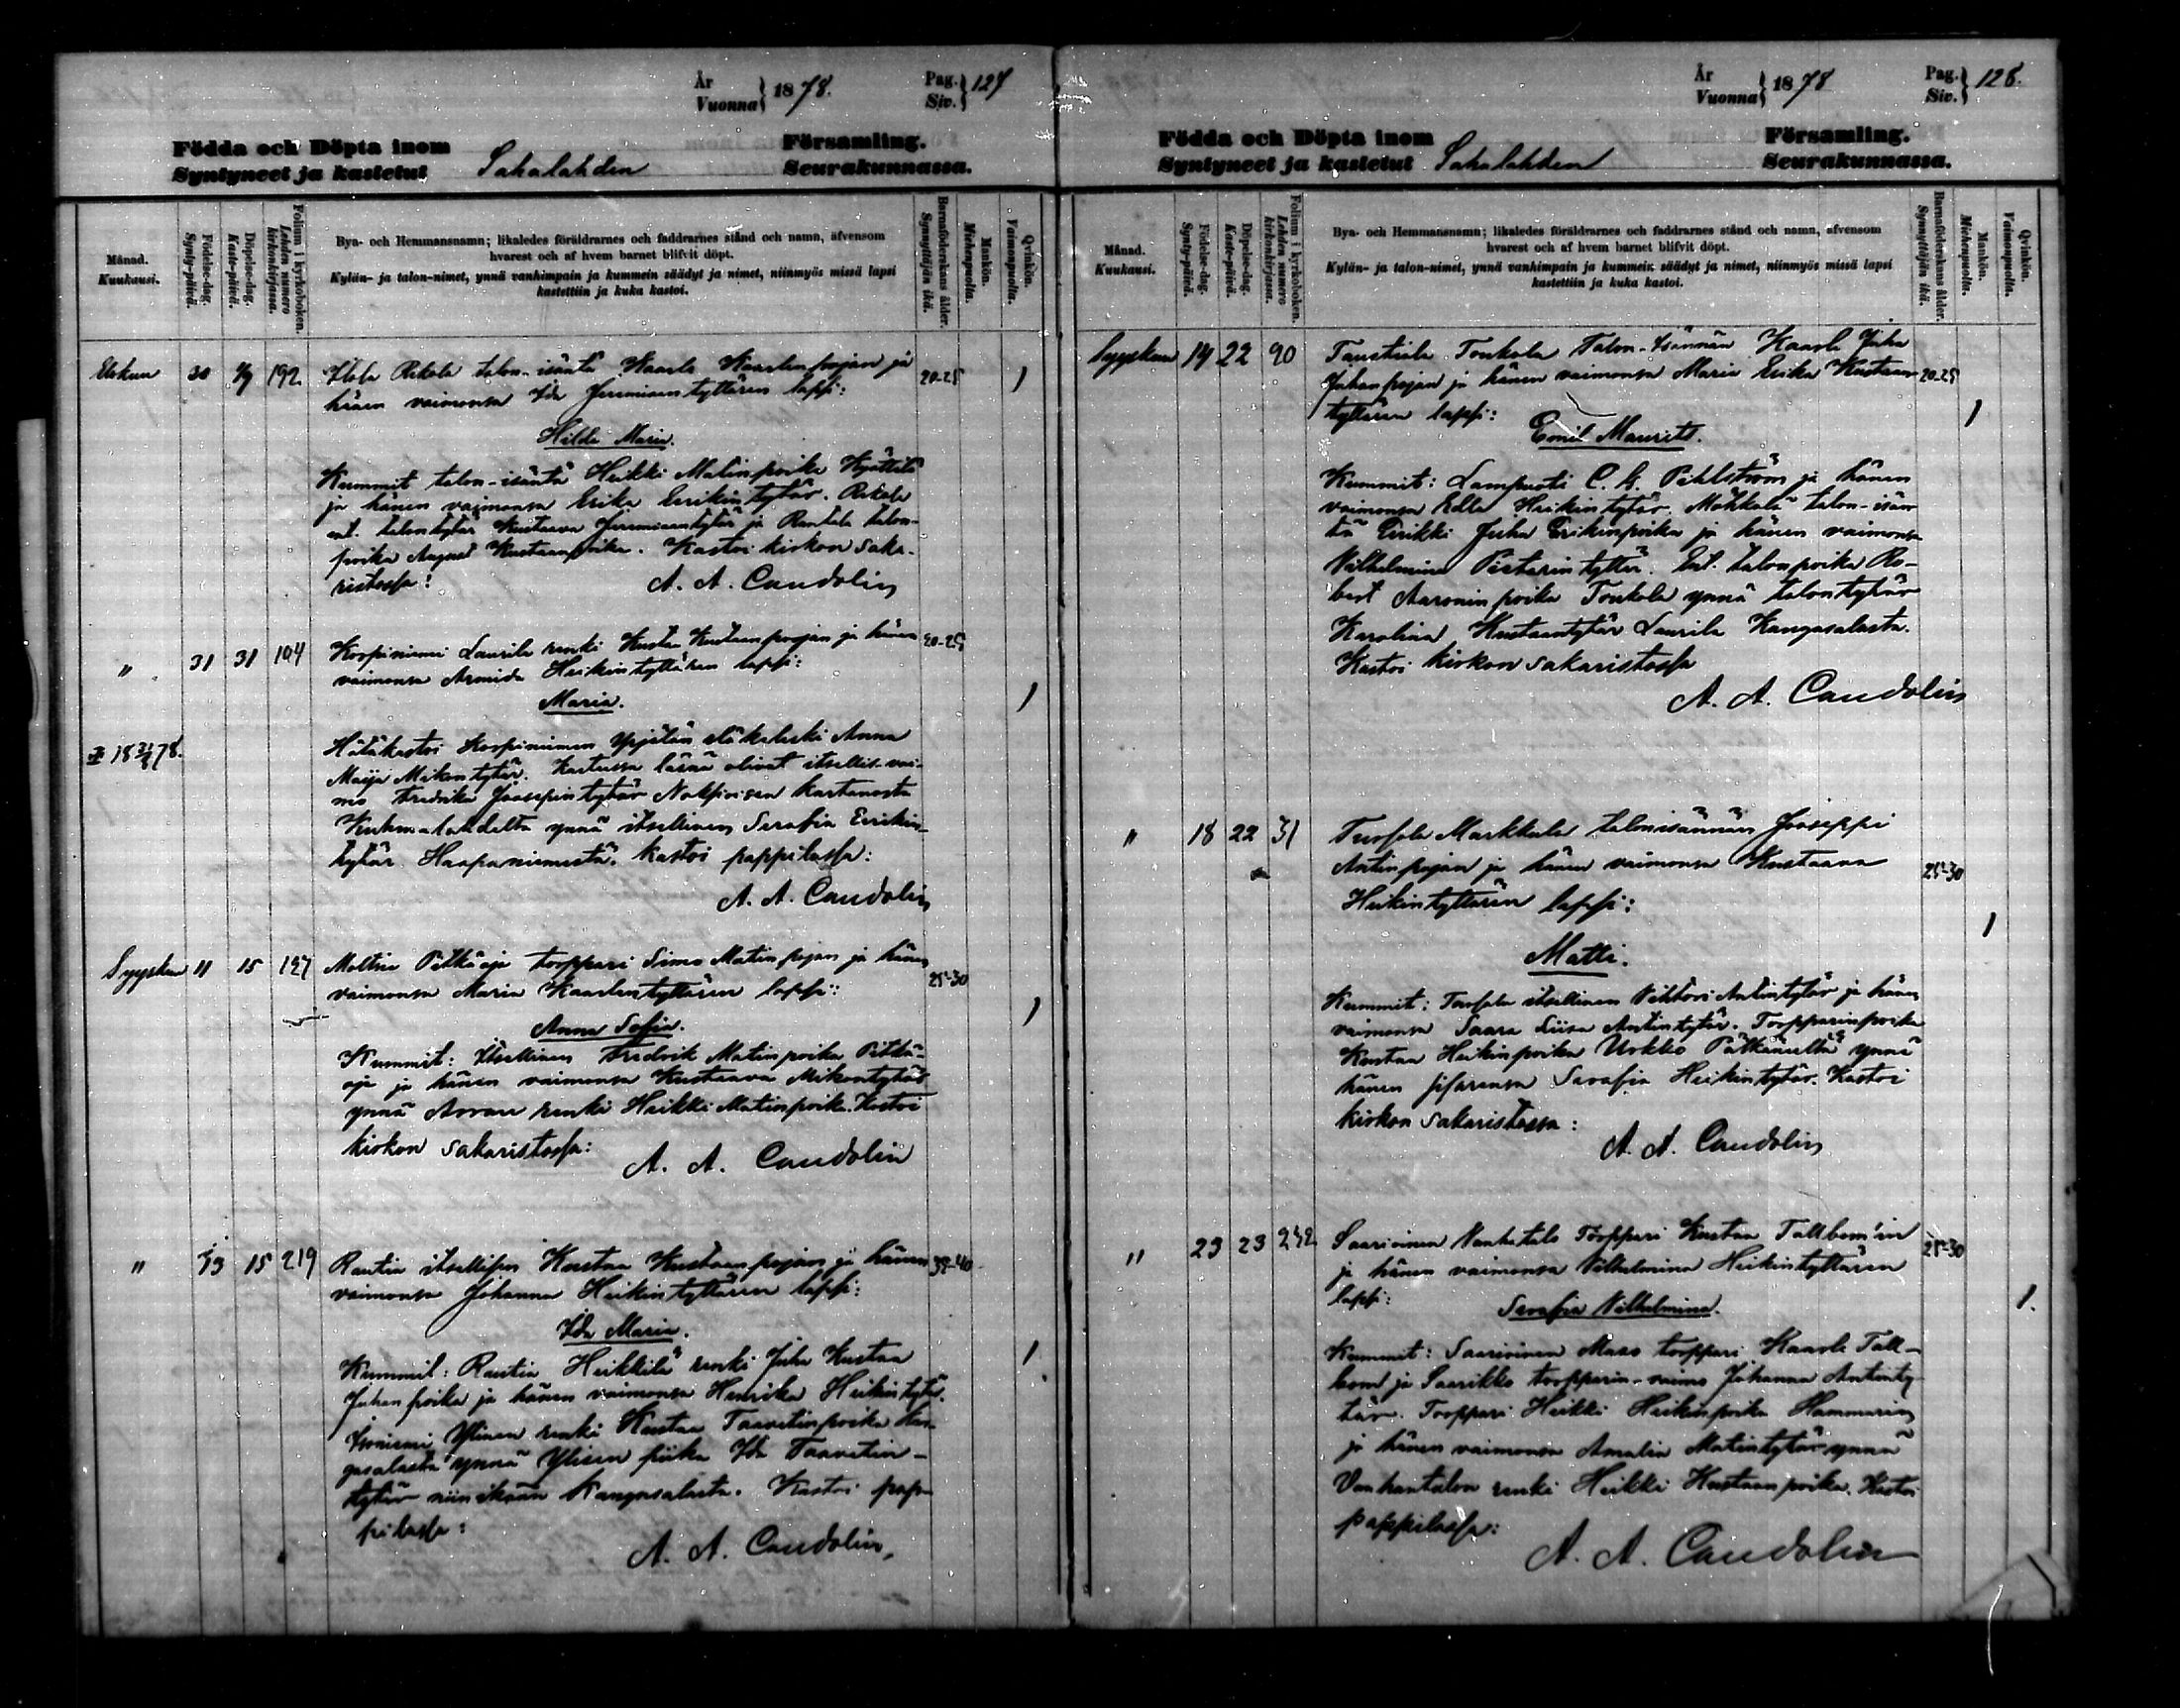 År
Vuonna } 1878. Pag. Siv. } 127
Födda och Döpta inom Församling.
Syntyneet ja kastetut Sahalahden Seurakunnassa.
Månad. Kuukausi.
Födelse-dag. Synty-päivä.
Döpelse-dag. Kaste-päivä.
Folium i kyrkoboken. Lehden numero kirkonkirjassa.
Bya- och Hemmansnamn; likaledes föräldrarnes och faddrarnes stånd och namn, äfvensom
hvarest och af hvem barnet blifvit döpt.
Kylän- ja talon-nimet, ynnä vanhimpain ja kummein säädyt ja nimet, niinmyös missä lapsi
kastettiin ja kuka kastoi.
Barnaföderskans ålder. Synnyttäjän ikä.
Mankön. Miehenpuolia.
Qvinkön. Vaimonpuolia.
Elokuu 30 1/9 192 Rekola talon-isäntä Kaarlo Kaarlenpojan ja 20-25 1
hänen vaimonsa Ida Jeremiaantyttären lapsi:
Hilda Maria.
Kummit talon-isäntä Heikki Matinpoika
ja hänen vaimonsa Erika Eerikintytär. Rekola
talontytär Kustaava Jeremiaantytär ja Rantala talon-
poika August Kustaanpoika. Kastoi kirkon saka-
ristossa: A. A. Candolin
" 31 31 104 Korpiniemi Laurila renki Kustaa Kustaanpojan ja hänen 20-25
vaimonsa Armida Heikintyttären lapsi:
Maria. 1
18 31/8 78. Hätäkastoi Korpiniemen Anna
Maija Mikontytär. Kasteessa läsnä olivat itsellis-vai-
mo Fredrika Joosepintytär kartanosta
Kuhmalahdelta ynnä itsellinen Serafia Eerikin-
tytär Haapaniemestä. Kastoi pappilassa:
A. A. Candolin
Syyskuu 11 15 127 Moltsia Pitkäoja torppari Simo Matinpojan ja hänen 25-30
vaimonsa Maria Kaarlentyttären lapsi: 1
Anna Sofia.
Kummit: Itsellinen Fredrik Matinpoika Pitkä-
oja ja hänen vaimonsa Kustaava Mikontytär
ynnä renki Heikki Matinpoika. Kastoi
kirkon sakaristossa: A. A. Candolin
" 13 15 219 Rautia itsellisen Kustaa Kustaanpojan ja hänen 35-40
vaimonsa Johanna Heikintyttären lapsi:
Ida Maria.
Kummit: Rautia Heikkilä renki Juha Kustaa 1
Juhanpoika ja hänen vaimonsa Henrika Heikintytär.
Isoniemi Ylinen renki Kustaa Taavetinpoika Kan-
gasalasta ynnä Ylisen piika Ida Taavetin-
tytär niinikään Kangasalasta. Kastoi pap-
pilassa: A. A. Candolin.
År
Vuonna } 1878 Pag. Siv. } 128.
Födda och Döpta inom Församling.
Syntyneet ja kastetut Sahalahden Seurakunnassa.
Månad. Kuukausi.
Födelse-dag. Synty-päivä.
Döpelse-dag. Kaste-päivä.
Folium i kyrkoboken. Lehden numero kirkonkirjassa.
Bya- och Hemmansnamn; likaledes föräldrarnes och faddrarnes stånd och namn, äfvensom
hvarest och af hvem barnet blifvit döpt.
Kylän- ja talon-nimet, ynnä vanhimpain ja kummein säädyt ja nimet, niinmyös missä lapsi
kastettiin ja kuka kastoi.
Barnaföderskans ålder. Synnyttäjän ikä.
Mankön. Miehenpuolia.
Qvinkön. Vaimonpuolia.
Syyskuu 14 22 90 Taustiala Toukola Talon-Isännän Kaarle Juha
Juhanpojan ja hänen vaimonsa Maria Erika Kustaan- 20-25
tyttären lapsi: 1
Emil Maurits.
Kummit: Lampuoti C. G. Pihlström ja hänen
vaimonsa Edla Heikintytär. Mökkälä talon-isän-
tä Eerikki Juha Erikinpoika ja hänen vaimonsa
Vilhelmina Pietarintytär. Ent. talonpoika Ro-
bert Aaroninpoika Toukola ynnä talontytär
Karolina Kustaantytär Laurila Kangasalasta.
Kastoi kirkon sakaristossa
A. A. Candolin
" 18 22 31 Tursola Markkula talonisännän Jooseppi
Antinpojan ja hänen vaimonsa Kustaava 25-30
Heikintyttären lapsi:
1
Matti.
Kummit: Tursola itsellinen Vihtori Antintytär ja hänen
vaimonsa Saara Liisa Antintytär. Torpparinpoika
Kustaa Heikinpoika Ukko Pälkäneeltä ynnä
hänen sisarensa Serafia Heikintytär. Kastoi
kirkon sakaristossa:
A. A. Candolin
" 23 23 242 Saarioinen Vanhatalo Torppari Kustaa Tallbom'in 25-30
ja hänen vaimonsa Vilhelmina Heikintyttären
lapsi: Serafia Vilhelmina. 1.
Kummit: Saarioinen Maso torppari Kaarle Tall-
bom ja Saarikko torpparin-vaimo Johanna Antinty-
tär. Torppari Heikki Heikinpoika Hammarin
ja hänen vaimonsa Amalia Matintytär ynnä
Vanhantalon renki Heikki Kustaanpoika. Kastoi
pappilassa:
A. A. Candolin